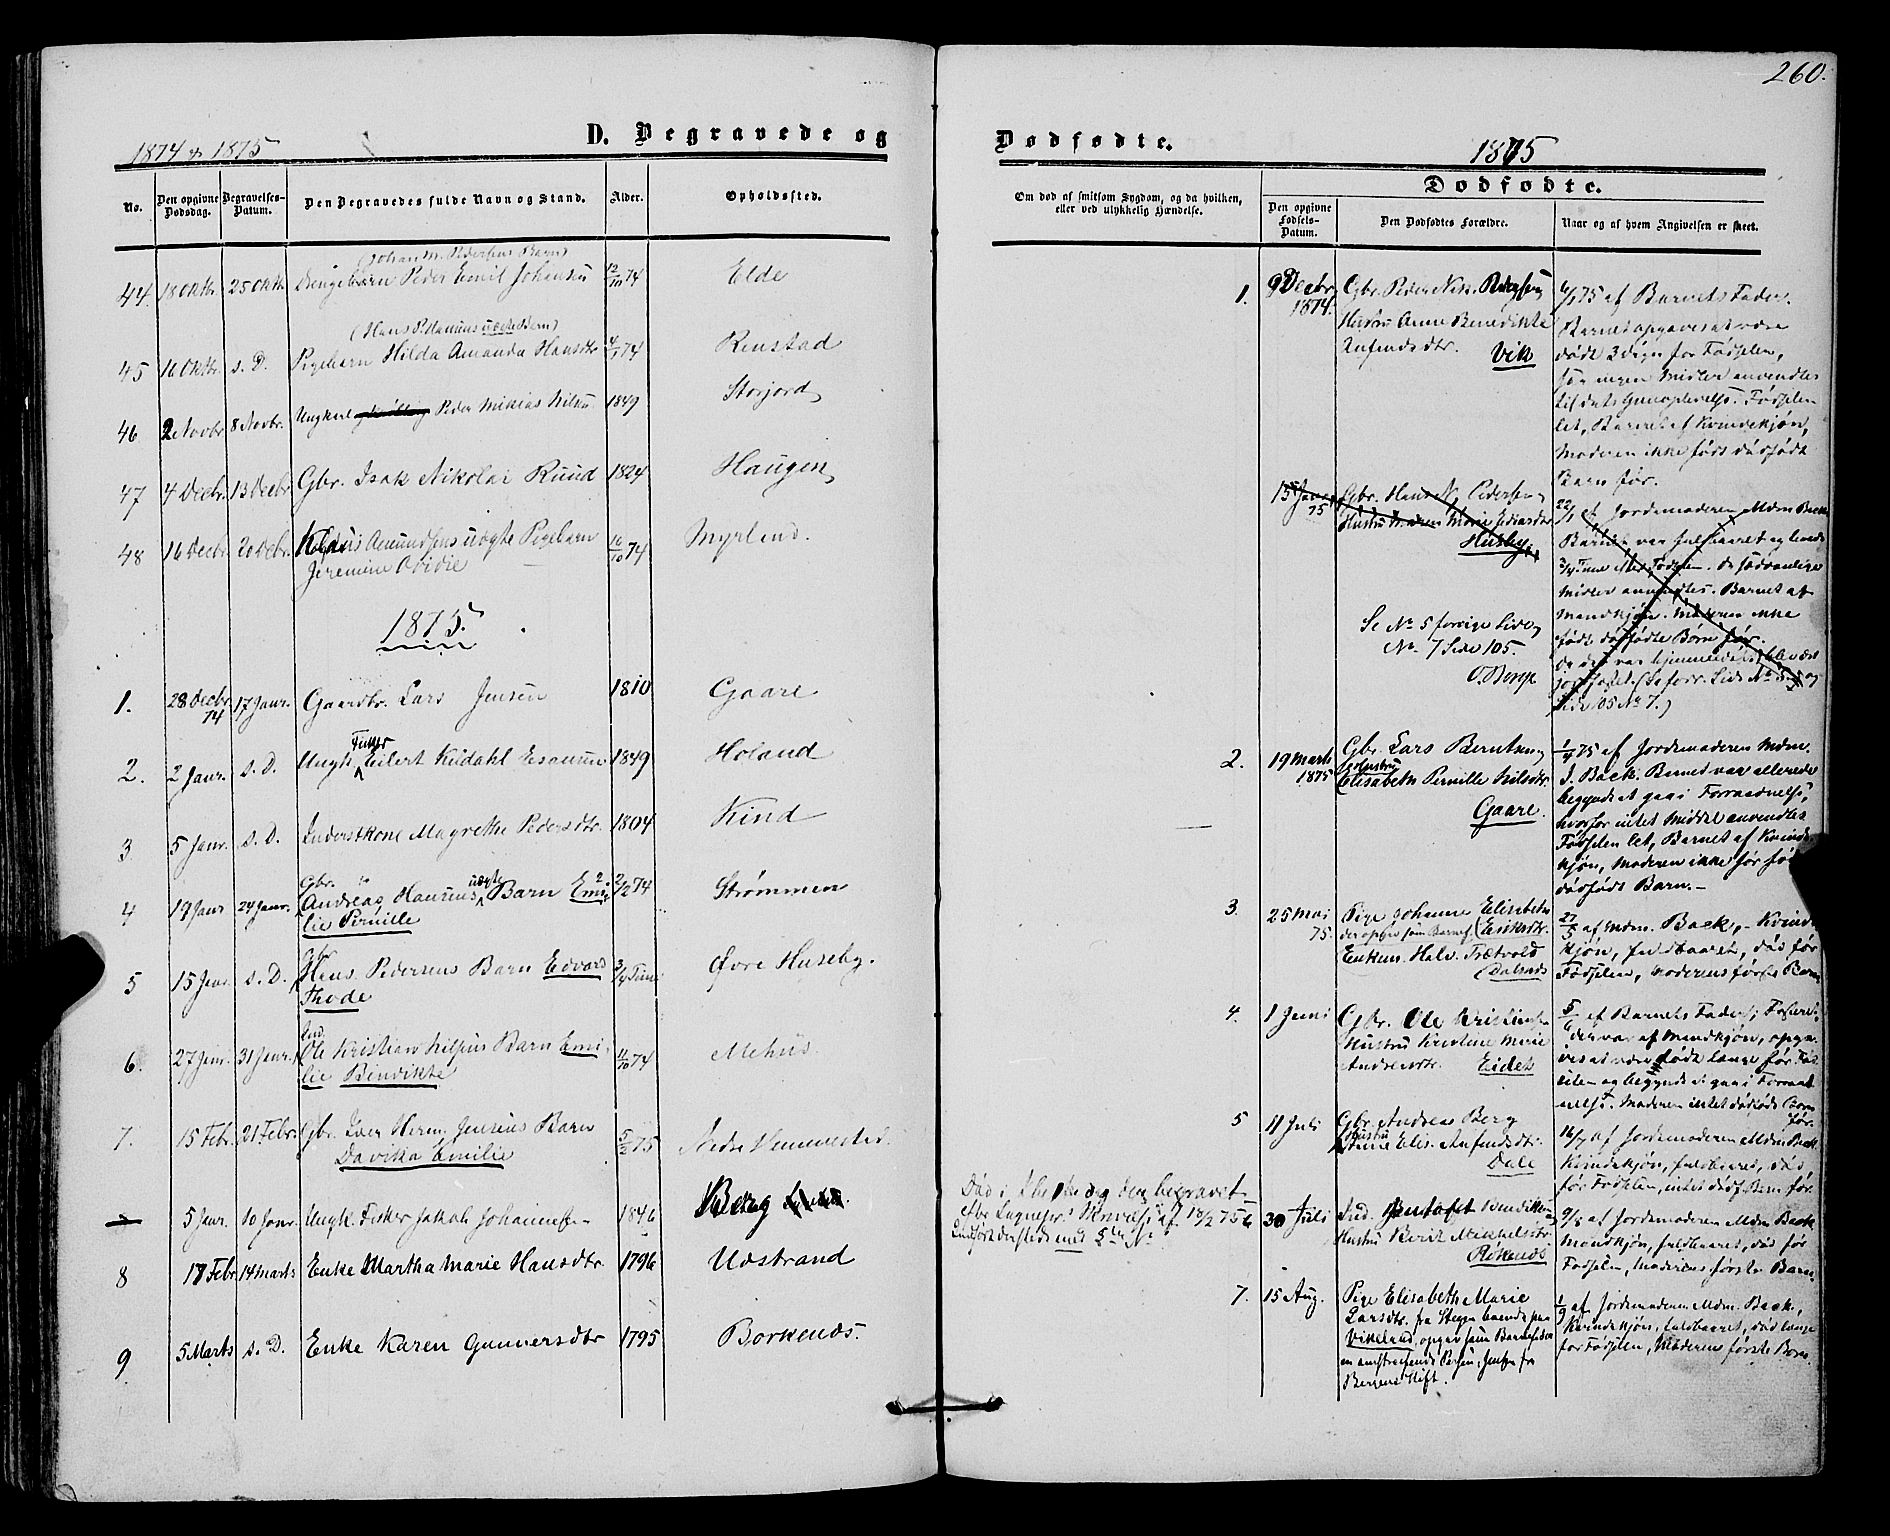 260.
1874 & 1875
D. Begravede og
Dødfødte.
1875
No.
Den opgivne Dødsdag.
Begravelses-Datum.
Den Begravedes fulde Navn og Stand.
Alder.
Opholdssted.
Om død af smitsom Sygdom, og da hvilken,
eller ved ulykkelig Hændelse.
Dødfødte.
Den opgivne Fødsels-Datum.
Den Dødfødtes Forældre.
Naar og af hvem Angivelsen er skeet.
(Johan M. Pedersens Barn)
44. 18 Oktbr. 25 Oktb Drengebarn Peder Emil Johansen 12/10 74 Elde
(Hans P. Hansens uægte Barn)
45 16 Oktbr. s. D. Pigebarn Hilda Amanda Hansdtr 4/9 74 Renstad
46 2 Novbr 8 Novbr. Ungkarl Peder Mikias Nilsen 1849 Storjord
47 4 Decbr. 13 Decbr. Gbr. Isak Nikolai Ruud 1824 Haugen
48 16 Decbr. 20 Decbr. Amundsens uægte Pigebarn 16/10 74 Myrlend.
Jeremine Ovidie
1875.
1. 28 Decbr. 74 17 Janr. Gaardbr. Lars Jensen 1810 Gaare
2. 2 Janr. s. D. Ungk. Fisker Eilert Kildahl Esaiasen 1849 Holand
3 5 Janr. s. D. Inderstkone Magrethe Pedersdtr. 1804 Kind
4 19 Janr 24 Janr. Gbr. Andreas Hansens uægte Barn Emi- 2/12 74 Strømmen
lie Pernille
5 15 Janr. s. D. Gbr. Hans Pedersens Barn Edvard 3/4 Time Øvre Huseby.
Thode
6. 27 Janr. 31 Janr. Ind. Ole Kristian Nilsens Barn Emi- 11/10 74 Mehus.
lie Bendikte
7. 15 Febr. 21 Febr. Gbr. Iver Herm. Jensens Barn 5/2 75 Nedre Hemmestad.
Davika Emilie
5 Janr. 10 Janr. Ungk. Fisker Jakob Johannessen 1846 Berg
8 17 Febr. 14 Marts Enke Martha Marie Hansdtr. 1796 Udstrand
9 5 Marts s. D. Enke Karen Gunnersdtr 1795 Borkenes.
1. 9 Decbr. 1874. Gbr. Peder Nik. Pedersen
Hustru Anne Benedikte
Anfindsdtr. Vik
6/1 75 af Barnets Fader.
Barnet opgaves at være
død 3 Døgn før Fødselen,
før ingen Midler anvendtes
til dets Gjenoplivelse. Fødselen
let, Barnet af Kvindekjøn,
Moderen ikke født dødfødt
Barn før.
15 Janr. 75 Gbr. Hans N. Pedersen
Hustru Maren Marie Edvardsdtr
Husby
22/1 af Jordemoderen Mdm Back.
Barnet var fuldbaaret og levede
3/4 Time efter Fødselen. De sædvanlige
Midler anvendtes. Barnet af
Mandkjøn. Moderen ikke
født dødfødte Børn før.
Da det var hjemmedøbt, blev det
jordfæstet (Se forr. Side No 5 og
Side 105 No 7.)
Se No 5 forrige Side,
No 7 Side 105.
O. Berge
2. 19 Marts 1875 Gbr. Lars Berntsen,
Hustru
Elisabeth Pernille Nilsdtr.
Gaare.
1/4 75 af Jordemoderen Mdm.
J. Back. Barnet var allerede
begyndt at gaa i Forraadnelse,
hvorfor intet Middel anvendtes
Fødselen let, Barnet af Kvinde-
kjøn, Moderen ikke før født
dødfødt Barn.—
3. 25 Mai 75. Pige Johanne Elisabeth
Eriksdtr.
Enkem. Halv. Trætvold
27/5 af Mdm. Back, – Kvinde-
kjøn, fuldbaaret, død før
Fødselen, Moderens første Barn
4. 1 Juni Gbr. Ole Kristiansen
Hustru Kristene Marie
Andreasdtr. Eidet
5/6 af Barnets Fader; Fosteret
der var af Mandkjøn, opga-
ves at være død længe før Fød-
selen og begyndt at gaa i Forraad-
nelse. Moderen intet dødfødt Barn
før.
5 11 Juli Gbr. Andreas Berg
Hustru
Anne Elis. Anfindsdtr.
Dale
16/7 af Jordemoderen Mdm Back
Kvindekjøn, fuldbaaret, død
før Fødselen, intet dødf. Barn før.
6 30 Juli Ind. Bendiktsen
Hustru Berit Mikkelsdtr.
9/8 af Jordemoderen Mdm Back
Mandkjøn, fuldbaaret, død før
Fødselen, Moderens første Barn.
7. 15 Aug. Pige Elisabeth Marie
Larsdtr. fra Stegen boende paa
Vikeland, opgav som Barnefader
en omstreifende Person, Jensen fra
Bergens Stift.
1/9 af Jordemoderen Mdm. Back,
Kvindekjøn, fuldbaaret, død længe
før Fødselen, Moderens første Barn.